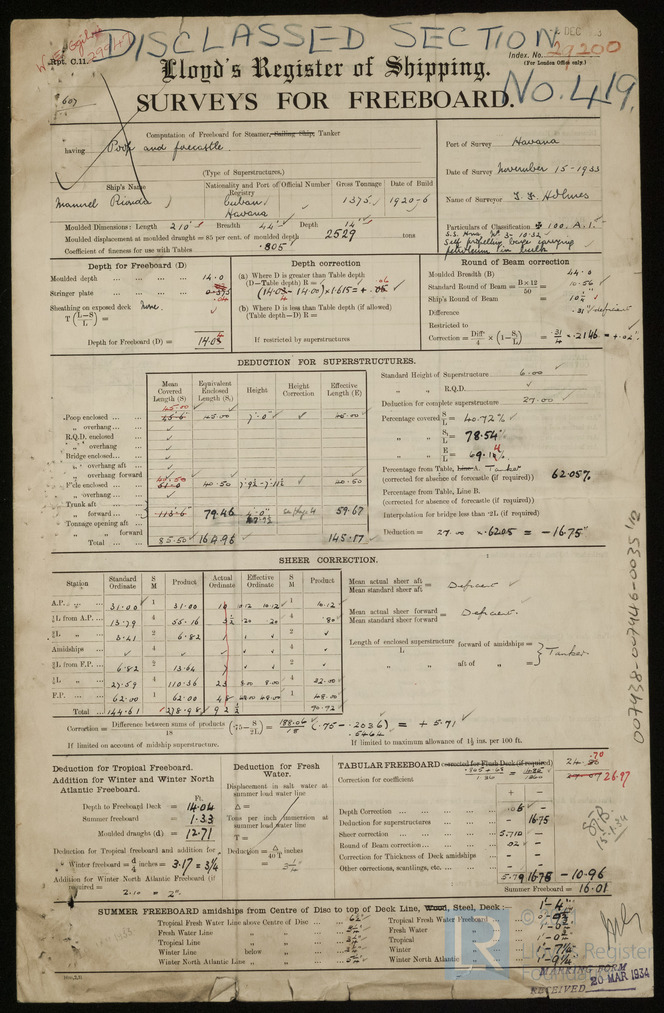 DISCLASSED SECTION
No. 419.
Rpt. C.11.
Index. No. 29200
(For London Office only.)
Lloyd's Register of Shipping.
607
SURVEYS FOR FREEBOARD.
Computation of Freeboard for Steamer, Sailing Ship, Tanker
having Poop and forecastle.
(Type of Superstructures.)
Port of Survey Havana
Date of Survey November 15-1933
Name of Surveyor
Ship's Name
Nationality and Port of Registry
Official Number
Gross Tonnage
Date of Build
Manuel Rionda
Cuban
Havana
1375
1920-6
Particulars of Classification 100. A.1.
Self propelling barge carrying
petroleum in bulk
Moulded Dimensions: Length 210' Breadth 44' Depth 14'
Moulded displacement at moulded draught = 85 per cent. of moulded depth 2529 tons
Coefficient of fineness for use with Tables .805
Depth for Freeboard (D)
Moulded depth 14.0
Stringer plate .04
Sheathing on exposed deck None.
T (L-S / L) =
Depth for Freeboard (D) = 14.04
Depth correction
(a) Where D is greater than Table depth
(D-Table depth) R =
(b) Where D is less than Table depth (if allowed)
(Table depth-D) R =
If restricted by superstructures
Round of Beam correction
Moulded Breadth (B) 44.0
Standard Round of Beam = B×12 / 50 = 10.56
Ship's Round of Beam = 10¼
Difference .31 deficient
Restricted to
Correction = Diff. / 4 × (1 - S₁ / L) = .31 / 4 × .2146 = +.02"
DEDUCTION FOR SUPERSTRUCTURES.
Mean Covered Length (S)
Equivalent Enclosed Length (S₁)
Height
Height Correction
Effective Length (E)
Poop enclosed 45.00 45.00 7'-0" 45.00
" overhang
R.Q.D. enclosed
" overhang
Bridge enclosed
" overhang aft
" overhang forward
F'cle enclosed 40.50 40.50 40.50
" overhang
Trunk aft
" forward 79.46 4'-0" 59.67
Tonnage opening aft
" " forward
Total 85.50 164.96 145.17
Standard Height of Superstructure 6.00
" " R.Q.D.
Deduction for complete superstructure 27.00
Percentage covered S / L = 40.72%
" " S₁ / L = 78.54%
" " E / L =
Percentage from Table, Line A. Tanker
(corrected for absence of forecastle (if required)) 62.05%
Percentage from Table, Line B.
(corrected for absence of forecastle (if required))
Interpolation for bridge less than .2L (if required)
Deduction = 27.00 × .6205 = -16.75"
SHEER CORRECTION.
Station
Standard Ordinate
S M
Product
Actual Ordinate
Effective Ordinate
S M
Product
A.P. 31.00 1 31.00 10 10.12 10.12 1 10.12
⅙L from A.P. 13.79 4 55.16 .20 .20 4 .80
⅓L " 3.41 2 6.82 2
Amidships
⅓L from F.P. 6.82 2 13.64 2
⅙L " 27.59 4 110.36 23 8.00 8.00 4 32.00
F.P. 62.00 1 62.00 48 48.00 48.00 1 48.00
Total 144.61 278.98 90.92
Mean actual sheer aft / Mean standard sheer aft = Deficient
Mean actual sheer forward / Mean standard sheer forward = Deficient.
Length of enclosed superstructure / L forward of amidships =
" " aft of " = Tanker
Correction = Difference between sums of products / 18 (.75 - S / 2L) = 188.06 / 18 (.75 - .2036) = + 5.71
.5464
If limited on account of midship superstructure.
If limited to maximum allowance of 1½ ins. per 100 ft.
Deduction for Tropical Freeboard.
Addition for Winter and Winter North
Atlantic Freeboard.
Ft.
Depth to Freeboard Deck = 14.04
Summer freeboard = 1.33
Moulded draught (d) = 12.71
Deduction for Tropical freeboard and addition for
Winter freeboard = d / 4 inches = 3.17 = 3¼
Addition for Winter North Atlantic Freeboard (if
required =
2.10 = 2"
Deduction for Fresh
Water.
Displacement in salt water at
summer load water line
Δ =
Tons per inch immersion at
summer load water line
T =
Deduction = Δ / 40 T inches
=
TABULAR FREEBOARD corrected for Flush Deck (if required)
Correction for coefficient
+ -
Depth Correction .06
Deduction for superstructures - 16.75
Sheer correction 5.71
Round of Beam correction .02
Correction for Thickness of Deck amidships - -
Other corrections, scantlings, etc. - -
5.79 16.75 -10.96
Summer Freeboard = 16.01
SUMMER FREEBOARD amidships from Centre of Disc to top of Deck Line, Wood, Steel, Deck :—
Tropical Fresh Water Line above Centre of Disc
Fresh Water Line " "
Tropical Line " "
Winter Line below "
Winter North Atlantic Line " "
Tropical Fresh Water Freeboard
Fresh Water "
Tropical "
Winter "
Winter North Atlantic "
1'-4"
1'-7¼"
1'-9¼"
007938-007946-0035 1/2
15.1.34
MARKING FORM
RECEIVED 20 MAR 1934
Lloyd's Register
Foundation